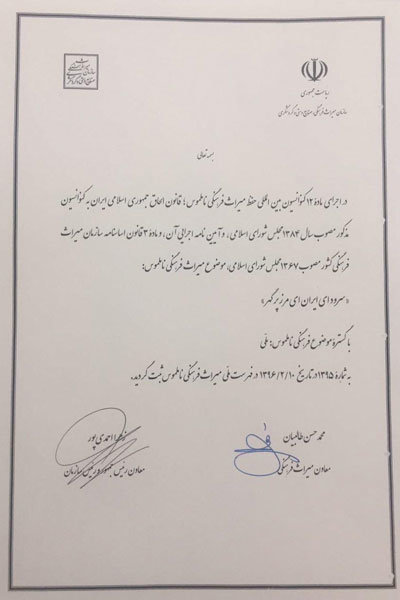 ریاست جمهوری
سازمان میراث فرهنگی، صنایع دستی و گردشگری
بسمه تعالی
در اجرای مادهٔ ۱۲ کنوانسیون بین المللی حفظ میراث فرهنگی ناملموس؛ قانون الحاق جمهوری اسلامی ایران به کنوانسیون
مذکور مصوب سال ۱۳۸۴ مجلس شورای اسلامی، و آیین نامه اجرایی آن، و مادهٔ ۳ قانون اساسنامه سازمان میراث
فرهنگی کشور مصوب ۱۳۶۷ مجلس شورای اسلامی، موضوع میراث فرهنگی ناملموس:
«سرود ای ایران ای مرز پر گهر»
با گسترهٔ موضوع فرهنگی ناملموس: ملی
به شمارهٔ ۱۳۹۵ در تاریخ ۱۳۹۶/۲/۱۰ در فهرست ملی میراث فرهنگی ناملموس ثبت گردید.
محمد حسن طالبیان
معاون میراث فرهنگی
زهرا احمدی پور
معاون رئیس جمهور و رئیس سازمان